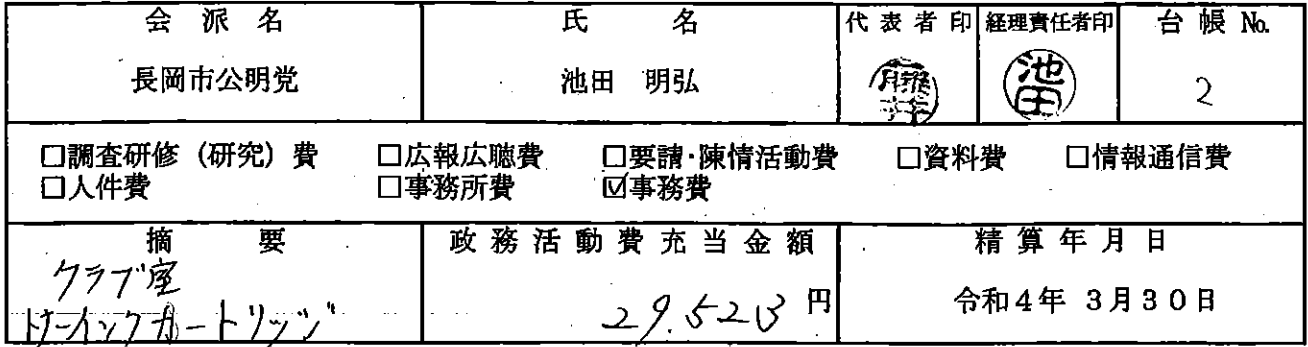 会派名 氏名 代表者印 経理責任者印 台帳№
長岡市公明党 池田 明弘 池田 2
□調査研修（研究）費 □広報広聴費 □要請・陳情活動費 □資料費 □情報通信費
□人件費 □事務所費 ☑事務費
摘要 政務活動費充当金額 精算年月日
クラブ室
トナーインクカートリッジ 29.523円 令和4年3月30日